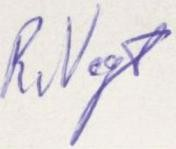 R. Vogt